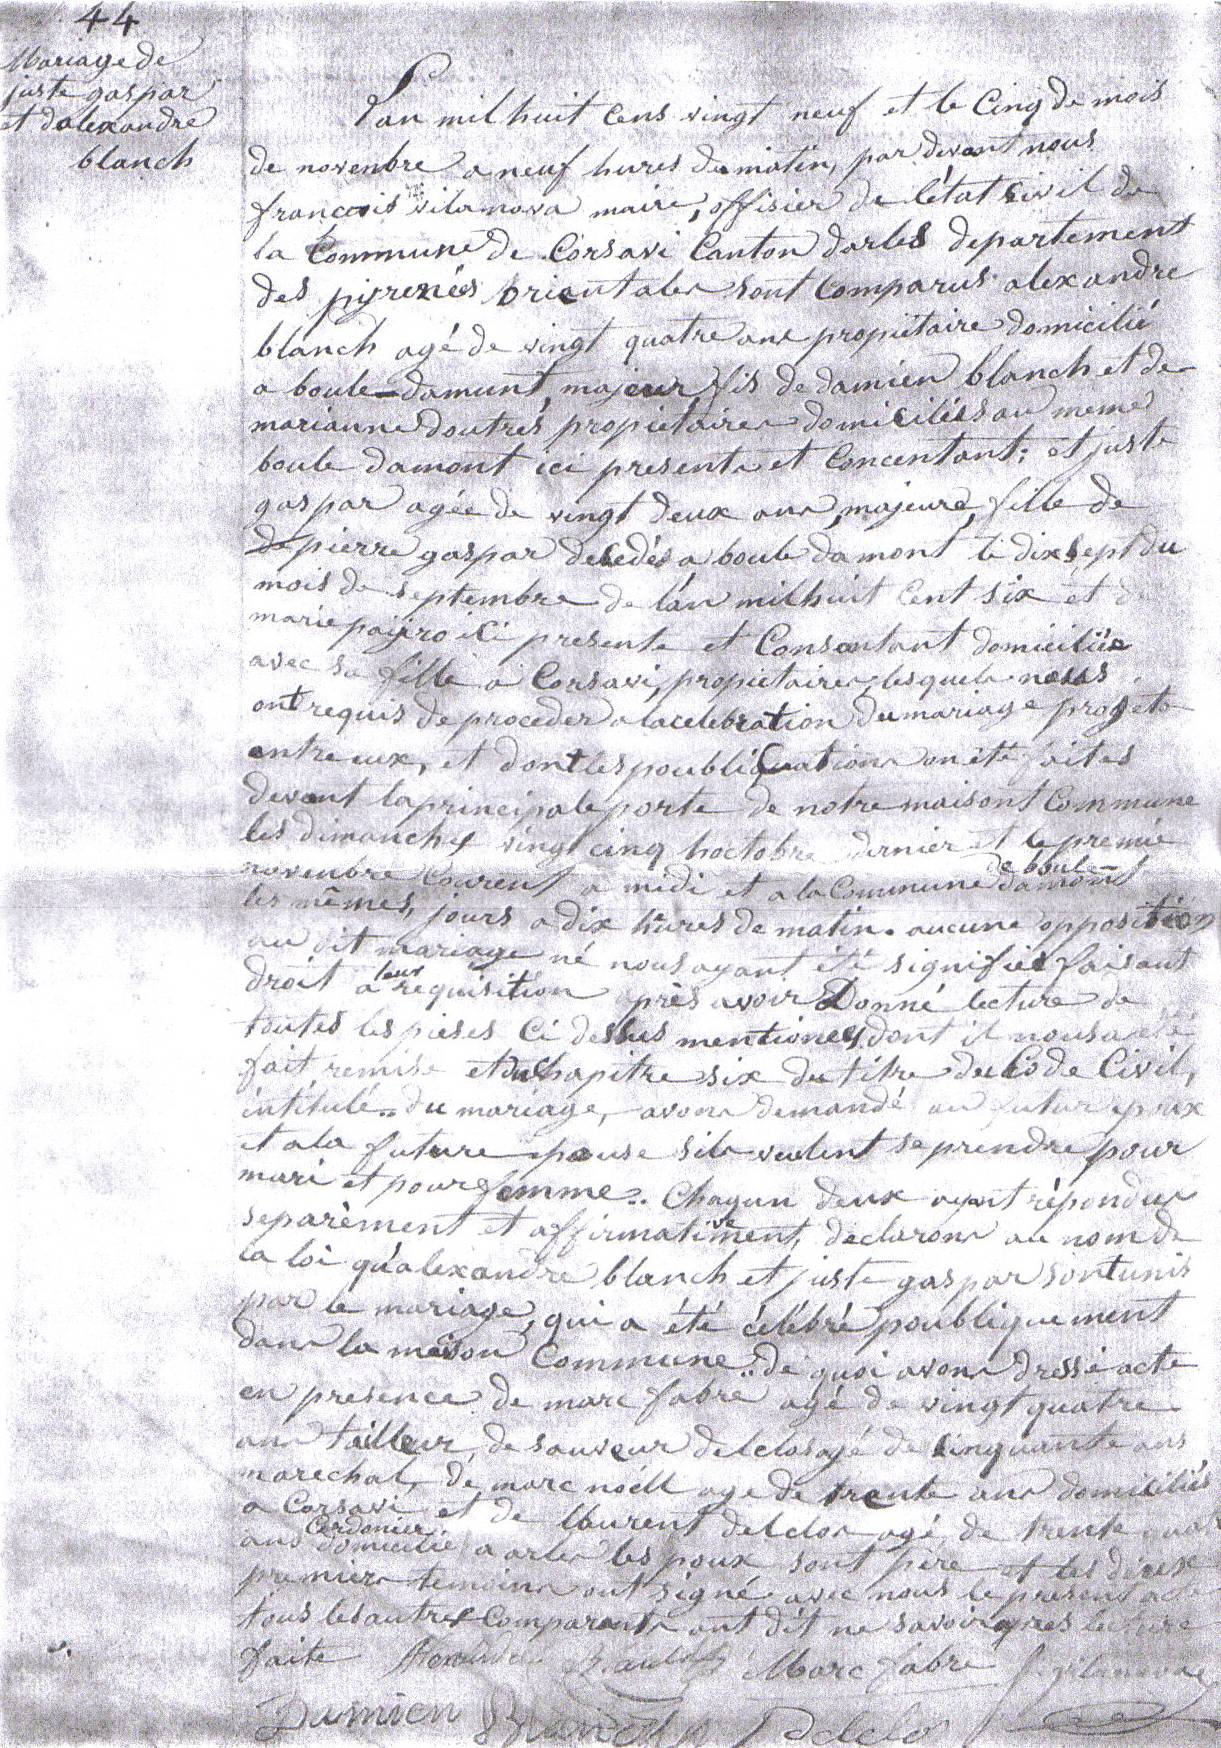 44
Mariage de
juste gaspar
et dalexandre
blanch
L'an mil huit cens vingt neuf et le Cinq de mois
de novenbre a neuf hures du matin, par devant nous
françois vilanova maire, offisier de l'état civil de
la Commune de Corsavi Canton darles departement
des pyrenées orientales sont comparus alexandre
blanch agé de vingt quatre ans propiétaire domicilié
a boule damunt, majeur fis de damien blanch et de
marianne doutres propietaires domiciliés au meme
boule damont ici presents et Concentant; et juste
gaspar agée de vingt deux ans, majeure, fille de
de pierre gaspar decedés a boule damont le dix sept du
mois de septembre de l'an mil huit Cent six et de
marie payro ici presente et Consentant domiciliée
avec sa fille a Corsavi, propietaires, lesquels nous
ont requis de proceder a la celebration du mariage projeté
entre eux, et dont les poubliquations on été faites
devant la principale porte de notre maisont Commune
les dimanches vingt cinq hoctobre dernier et le premie
novenbre Courent a midi et a la Commune de boule damont
les mêmes, jours a dix hures de matin. aucune opposition
au dit mariage né nous ayant été signifiée faisant
droit a leur requisition après avoir Donné lecture de
toutes les pieses Ci dessus mentionees dont il nous a eté
fait remise et du Chapitre six du titre du Code Civil,
intitulé.. du mariage, avons demandé au futur epoux
et a la future epouse sils veulent se prendre pour
mari et pour femme.. Chaqun deux ayant répondus
separèment et affirmativement, declarons au nom de
la loi qu'alexandre blanch et juste gaspar sont unis
par le mariage, qui a été célébré poubliquement
dans la maison Commune.. de quoi avons dressé acte
en presence de marc fabre agé de vingt quatre
ans tailleur, de sauveur delclos agé de sinquante ans
marechal, de marc noëll age de trente ans domiciliés
a Corsavi et de llaurent delclos agé de trente quatre
ans Cordonier domicilié a arles les poux sont père et les deux
premiers temoins ont signé avec nous le present acte
tous les autres Comparants ont dit ne savoir apres lecture
faite Marc fabre f. vilanova
Damien Blanch Delclos